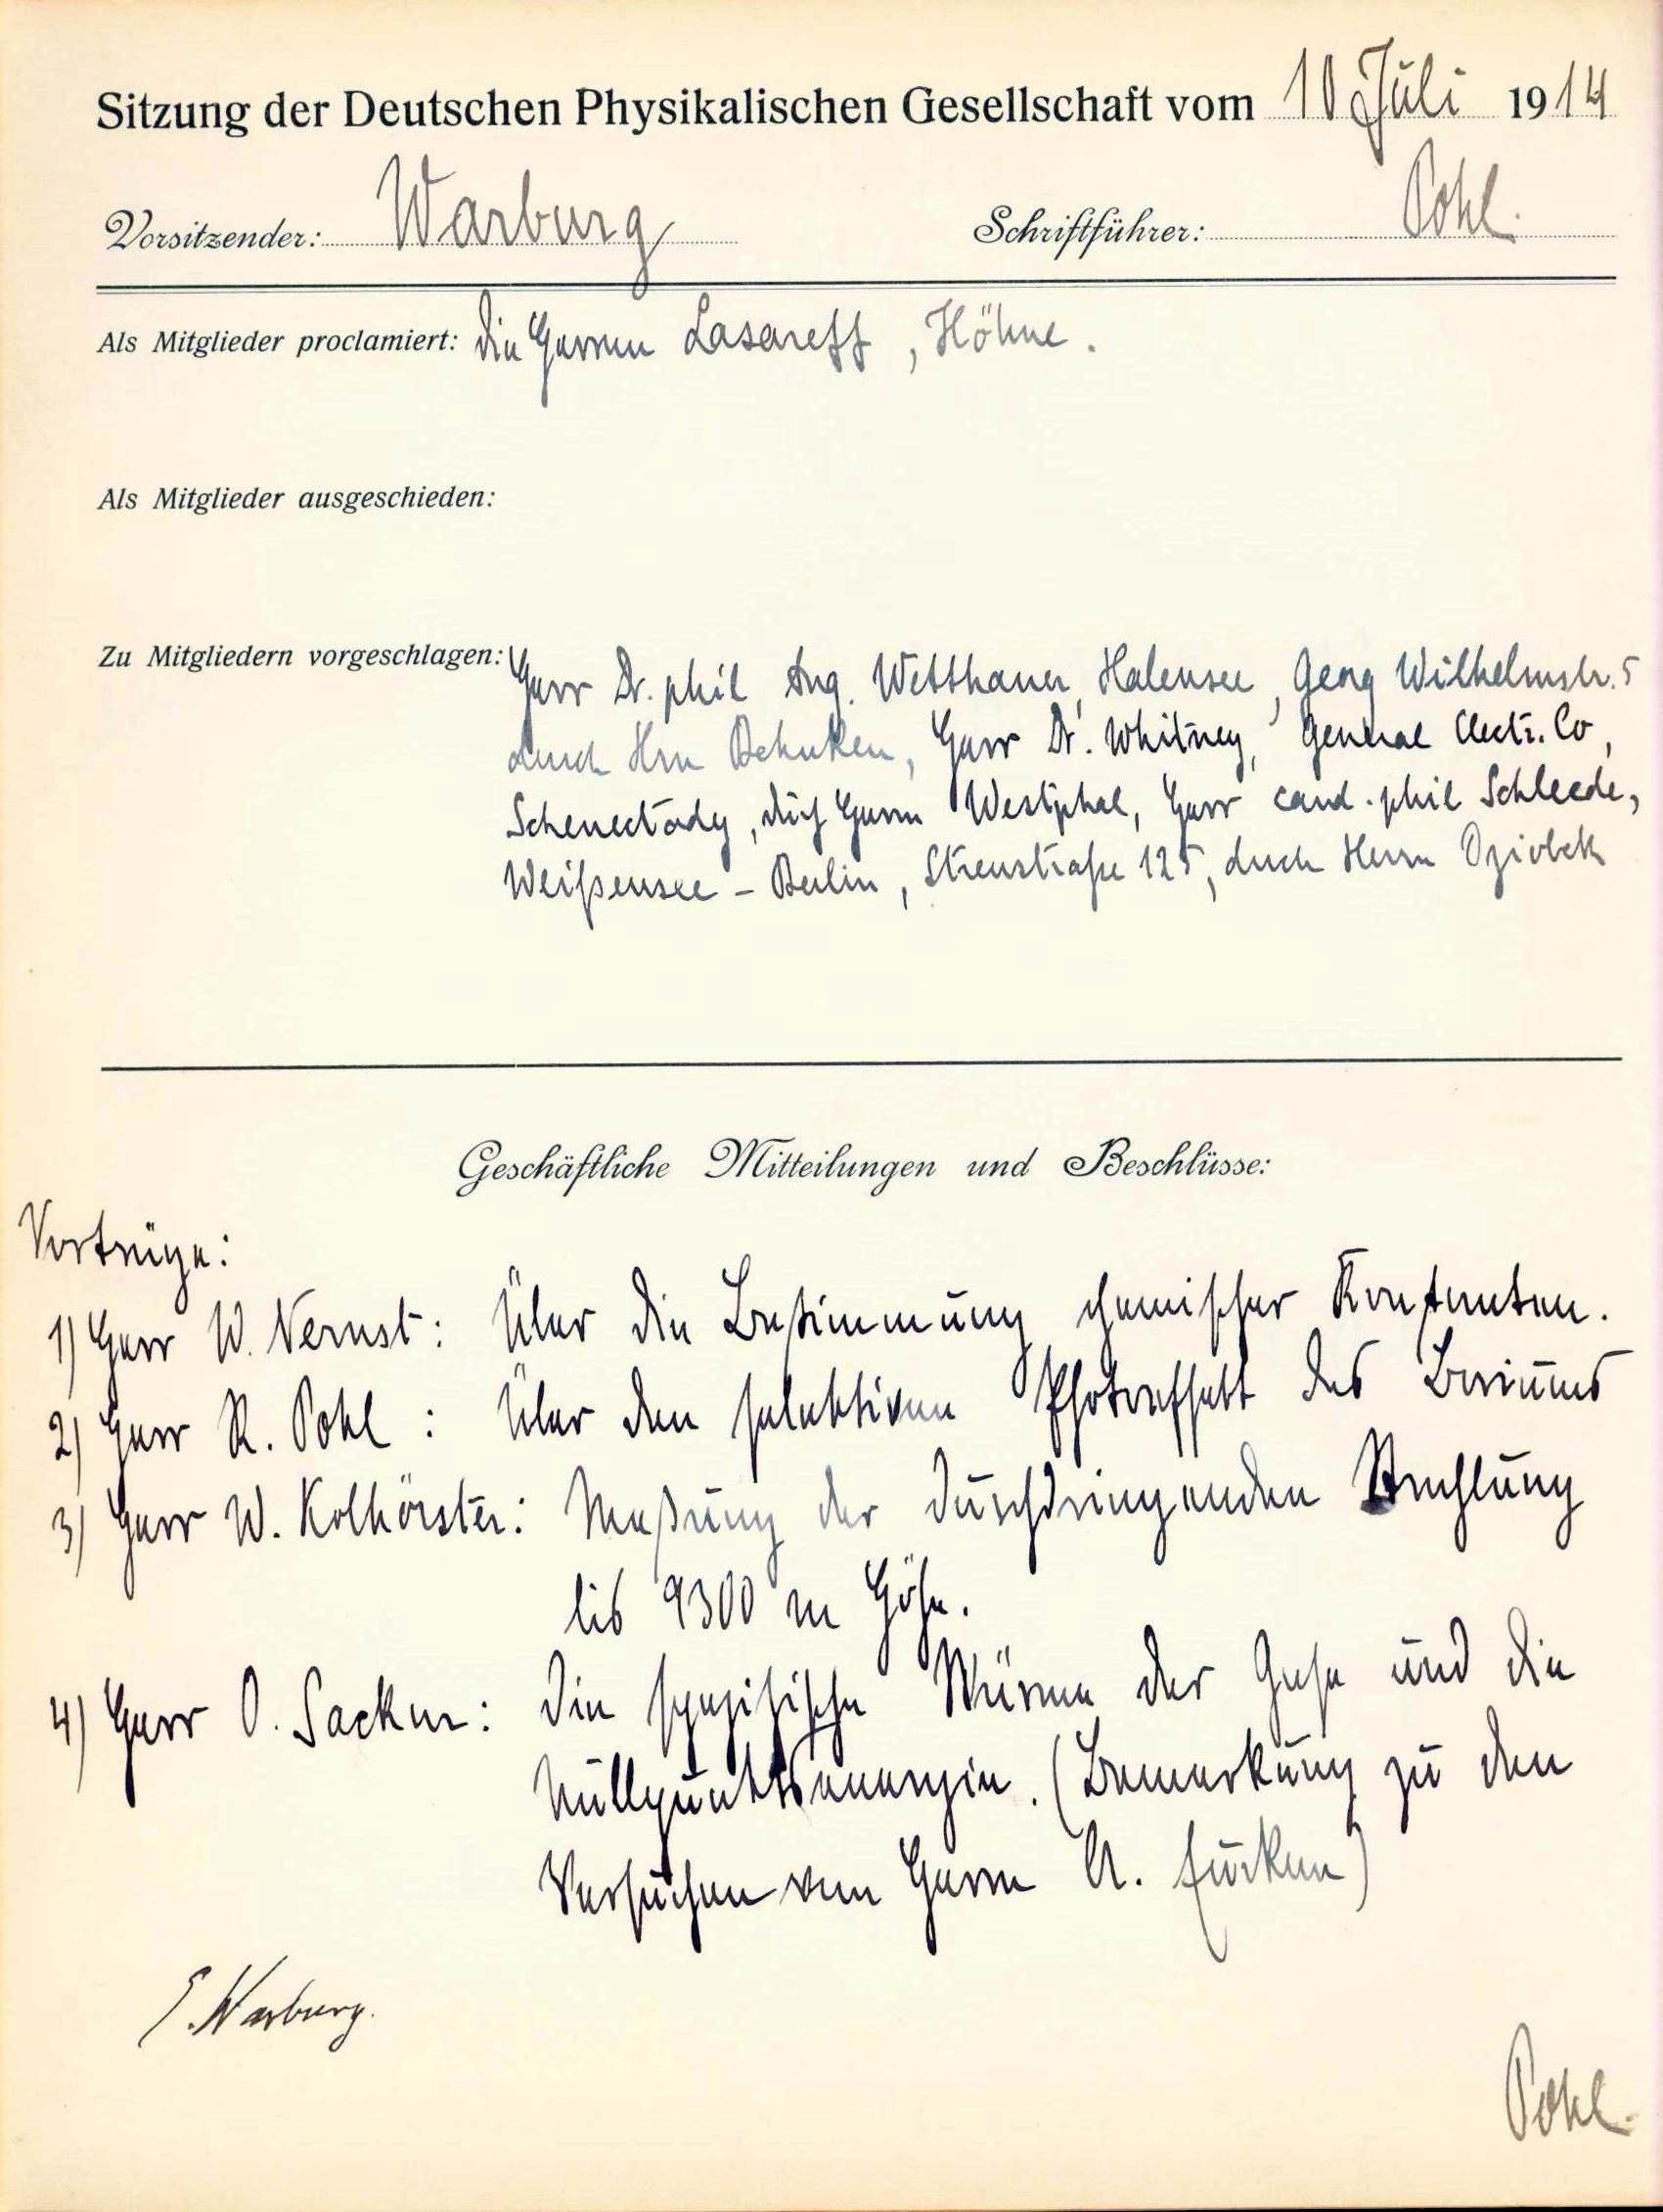 Sitzung der Deutschen Physikalischen Gesellschaft vom 10 Juli 1914
Vorsitzender: Warburg Schriftführer: Pohl.
Als Mitglieder proclamiert: die Herren Lasareff, Höhne.
Als Mitglieder ausgeschieden:
Zu Mitgliedern vorgeschlagen: Herr Dr. phil Aug. Wetthauer, Halensee, Georg Wilhelmstr. 5
durch Hrn Behnken, Herr Dr. Whitney, General Electr. Co,
Schenectady, durch Herrn Westphal, Herr cand. phil Schleede,
Weißensee - Berlin, Streustraße 125, durch Herrn Dziobek
Geschäftliche Mitteilungen und Beschlüsse:
Vorträge:
1) Herr W. Nernst: Über die Bestimmung chemischer Konstanten.
2) Herr R. Pohl: Über den selektiven Photoeffekt des Bariums
3) Herr W. Kolhörster: Messung der durchdringenden Strahlung
bis 9300 m Höhe.
4) Herr O. Sackur: Die spezifische Wärme der Gase und die
Nullpunktsenergie. (Bemerkung zu den
Versuchen von Herrn A. Eucken)
E. Warburg.
Pohl.